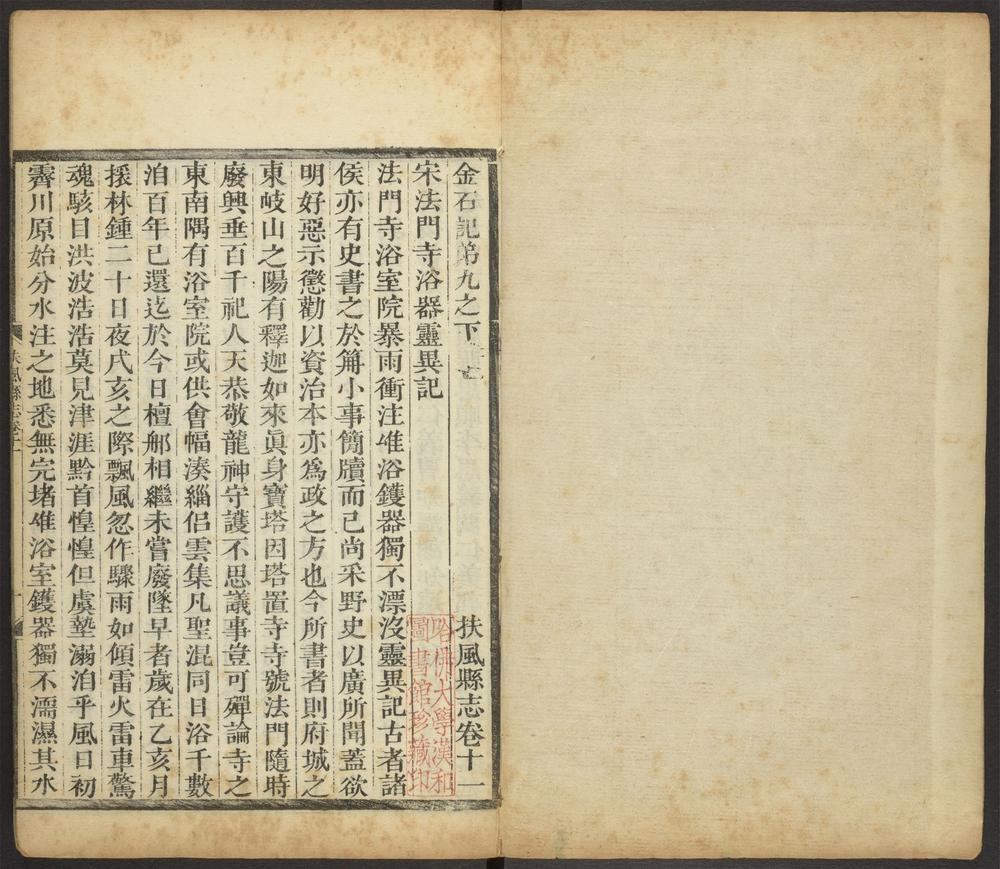 金石記第九之下　扶風縣志卷十一
宋法門寺浴器靈異記
法門寺浴室院暴雨衝注唯浴鑊器獨不漂沒靈異記古者諸
侯亦有史書之於篇小事簡牘而已尚采野史以廣所聞蓋欲
明好惡示懲勸以資治本亦爲政之方也今所書者則府城之
東岐山之陽有釋迦如來眞身寶塔因塔置寺寺號法門隨時
廢興垂百千祀人天恭敬龍神守護不思議事豈可殫論寺之
東南隅有浴室院或供會幅湊緇侶雲集凡聖混同日浴千數
洎百年已還迄於今日檀那相繼未嘗廢墜早者歲在乙亥月
援林鍾二十日夜戌亥之際飄風忽作驟雨如傾雷火雷車驚
魂駭目洪波浩浩莫見津涯黔首惶惶但虞墊溺洎乎風日初
霽川原始分水注之地悉無完堵唯浴室鑊器獨不濡濕其水
哈佛大學漢和
圖書館珍藏印
扶風縣志卷十一